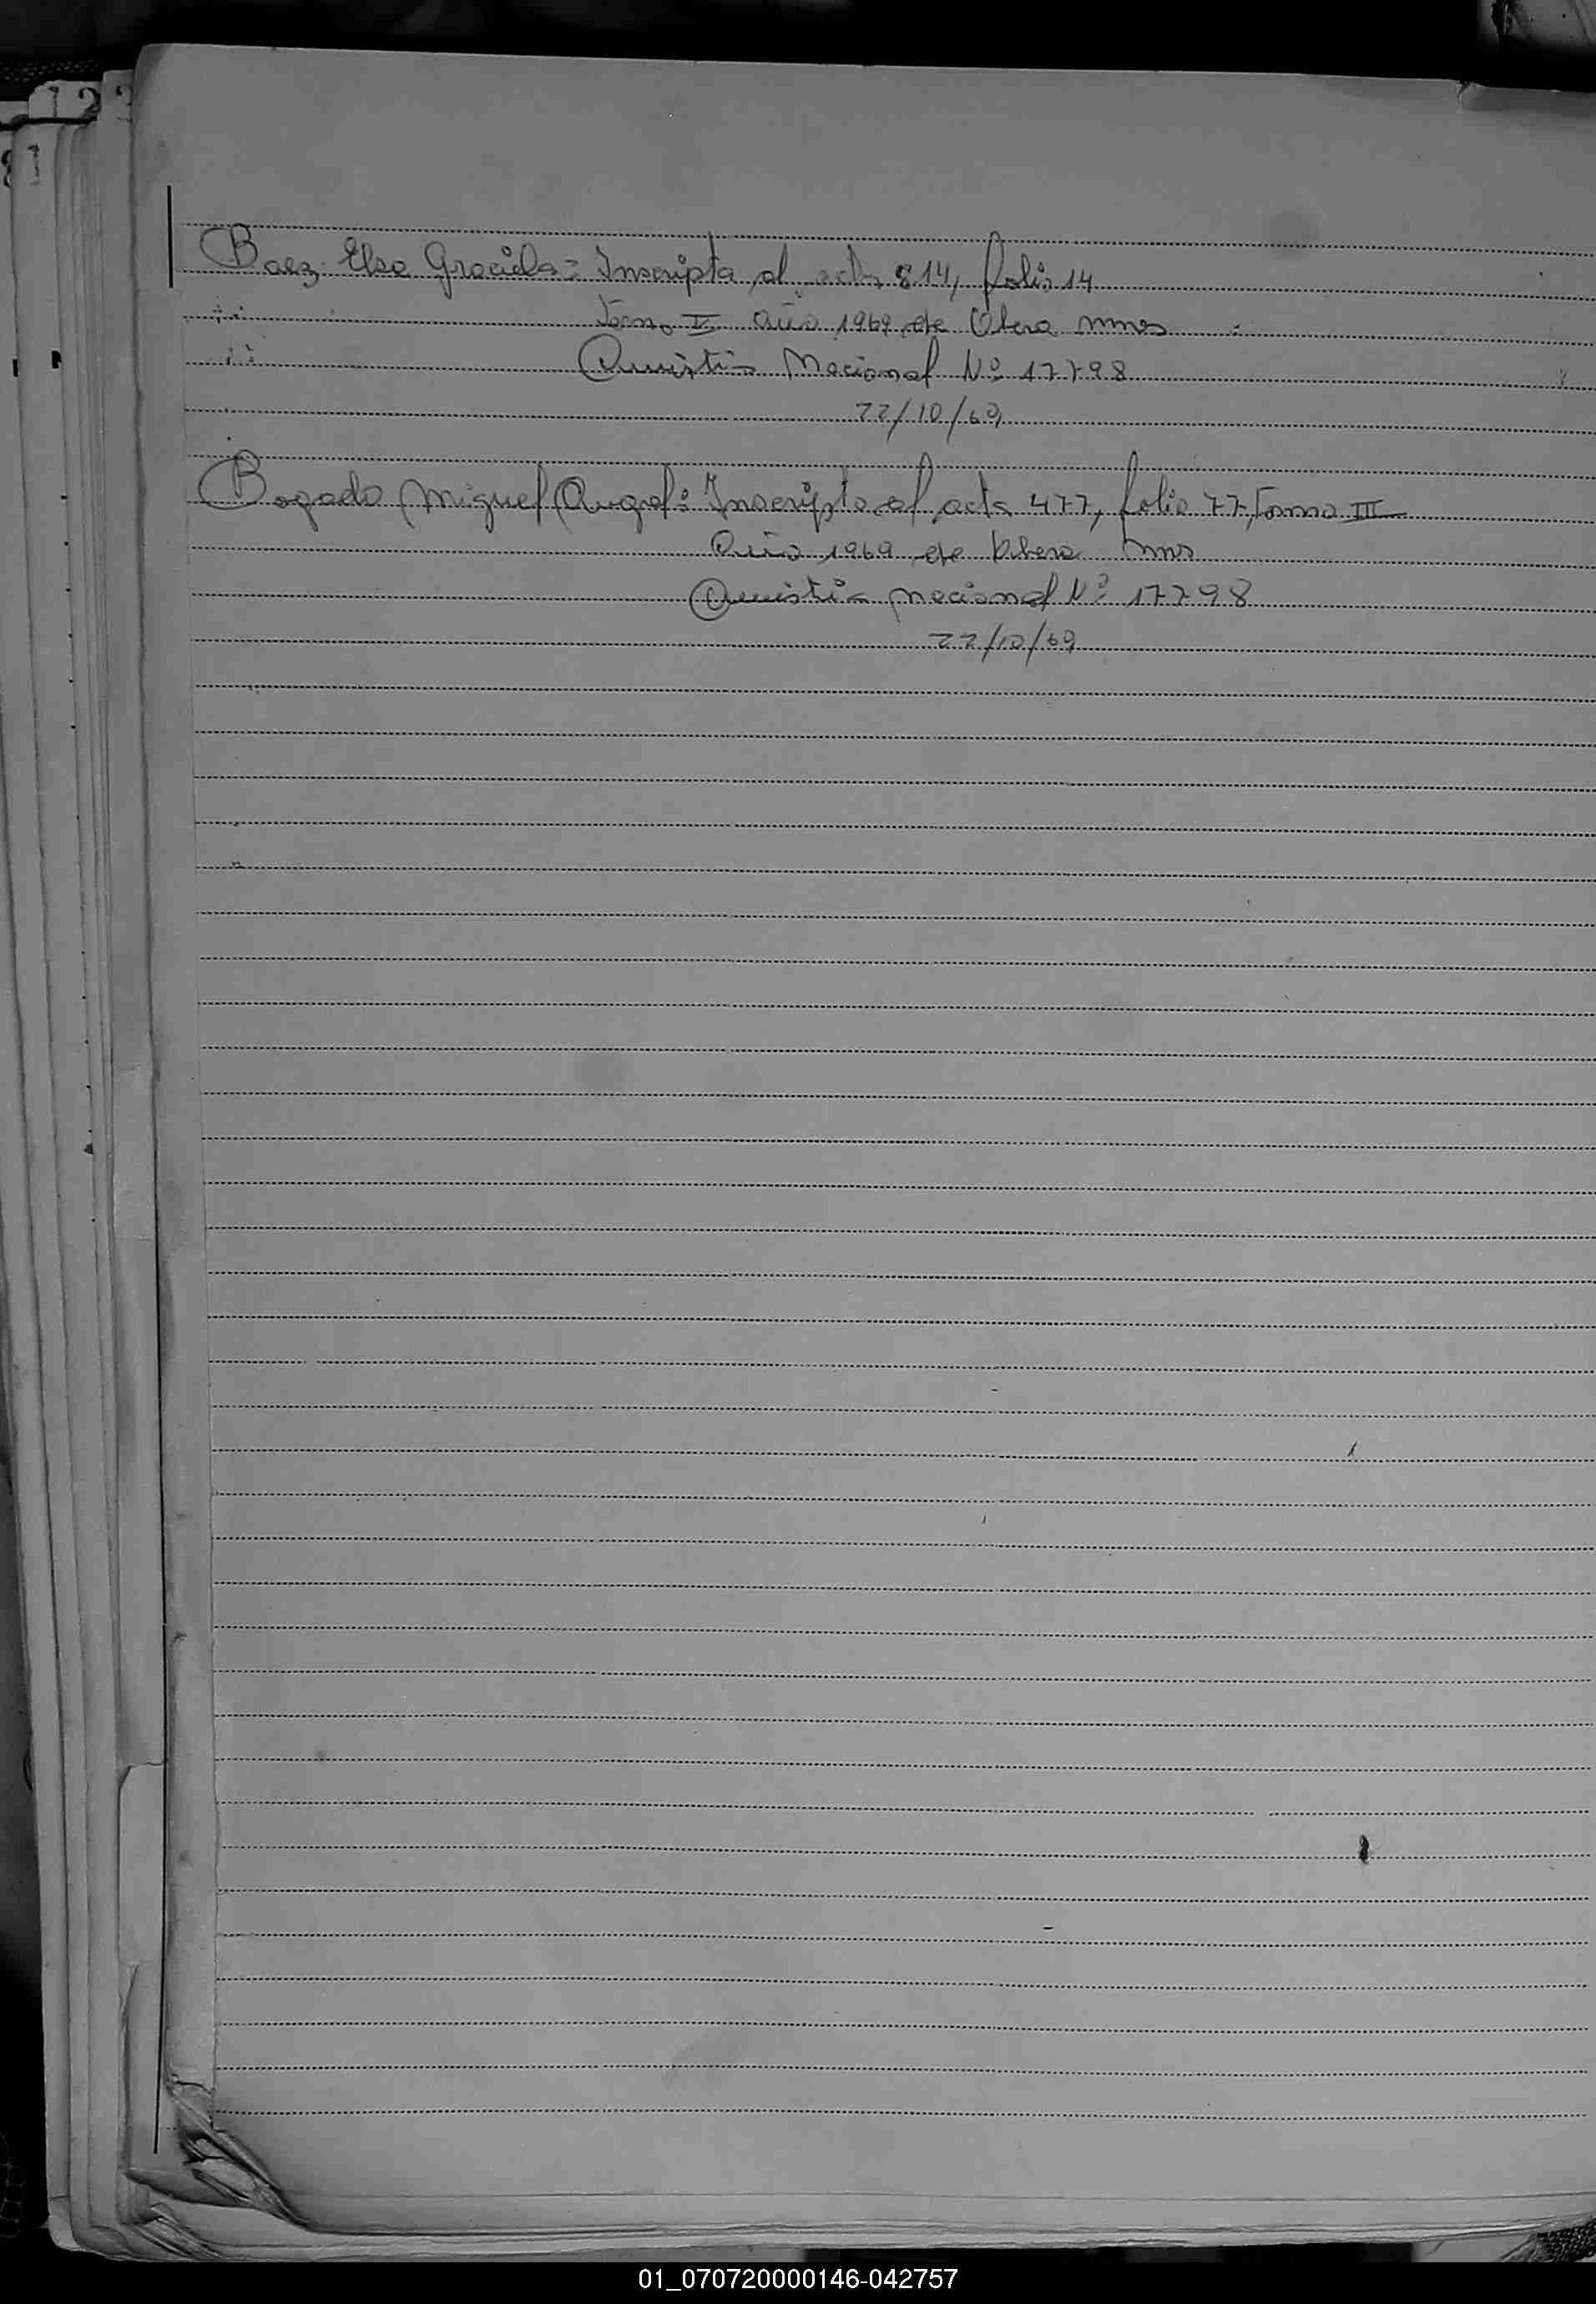 122
81
Baez Elsa Graciela = Inscripta al acta 814, folio 14
Tomo V Año 1969 de Obera mnes
Amnistia Nacional Nº 17798
22/10/69
Bogado Miguel Angel: Inscripto al acta 477, folio 77, Tomo III
Año 1969 de Obera mns
Amnistia nacional Nº 17798
22/10/69
01_070720000146-042757